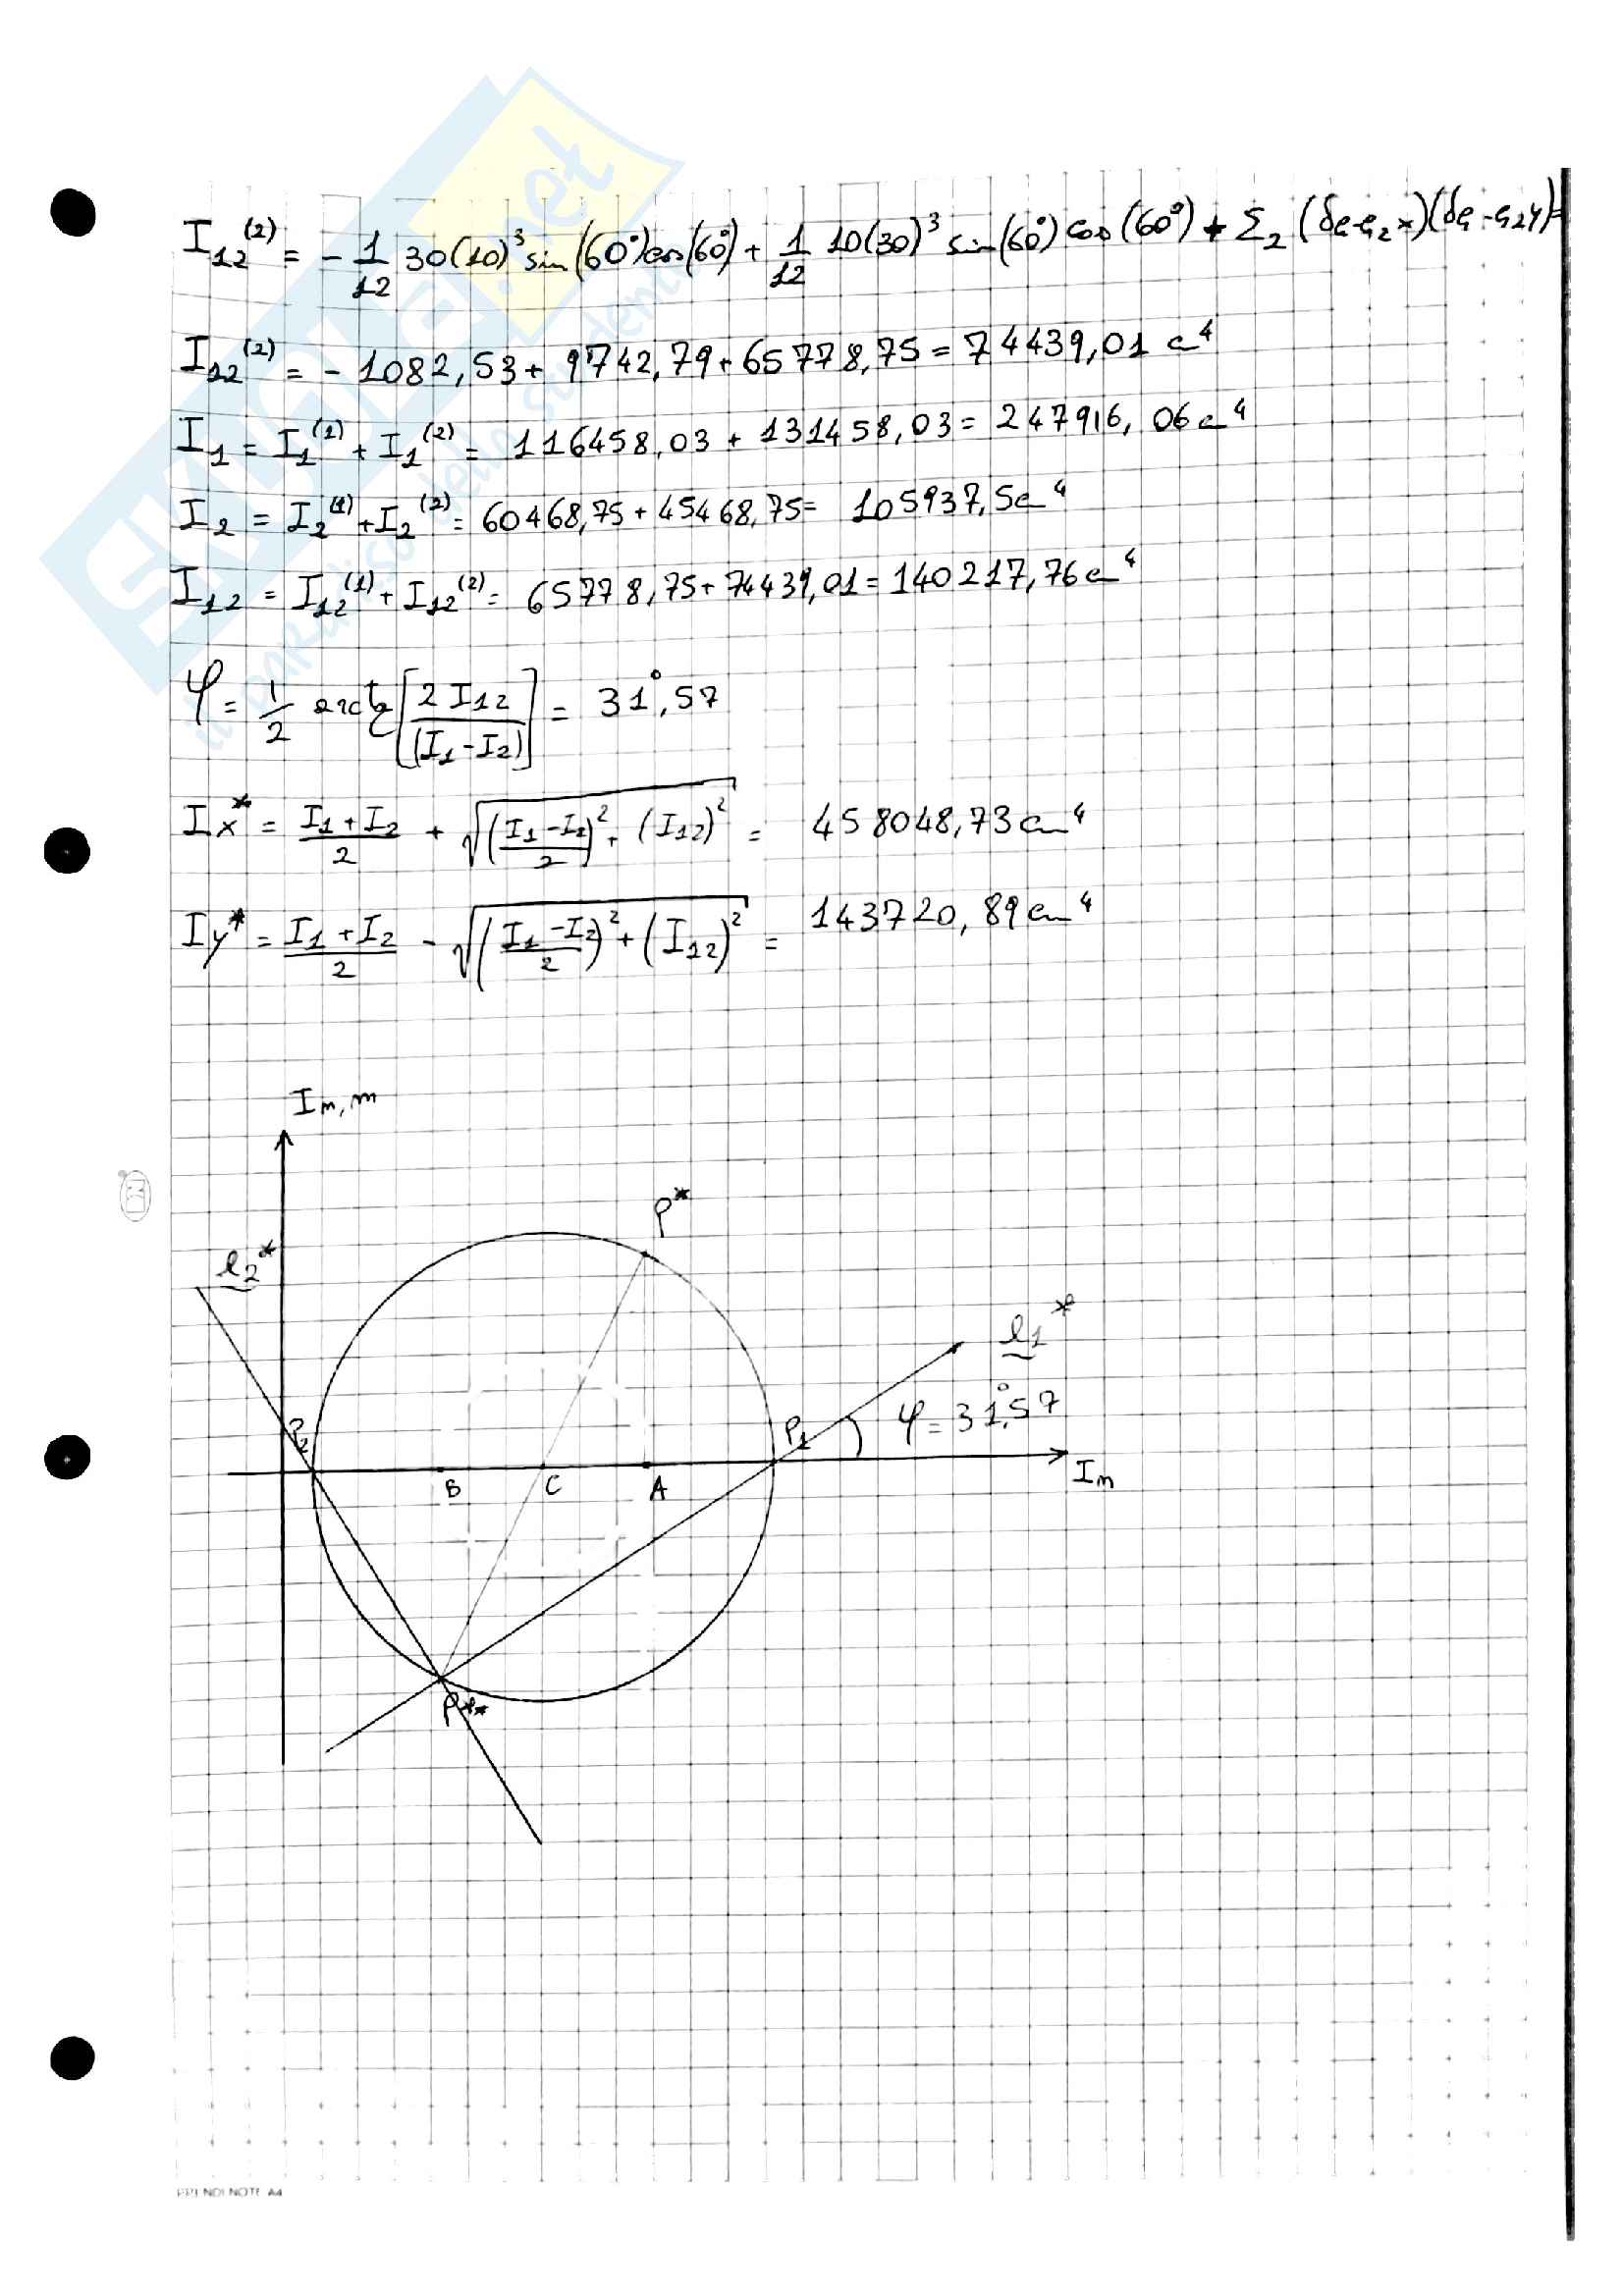 I₁₂⁽²⁾ = - 1/12 30(10)³ sin(60°)cos(60°) + 1/12 10(30)³ sin(60°) cos(60°) + Σ₂ (δG-G₂x)(δG-G₂y)=
I₁₂⁽²⁾ = - 1082,53 + 9742,79 + 65778,75 = 74439,01 cm⁴
I₁ = I₁⁽¹⁾ + I₁⁽²⁾ = 116458,03 + 131458,03 = 247916,06 cm⁴
I₂ = I₂⁽¹⁾ + I₂⁽²⁾ = 60468,75 + 45468,75 = 105937,5 cm⁴
I₁₂ = I₁₂⁽¹⁾ + I₁₂⁽²⁾ = 65778,75 + 74439,01 = 140217,76 cm⁴
φ = 1/2 arctg [2 I₁₂ / (I₁ - I₂)] = 31°,57
Ix* = (I₁ + I₂)/2 + √(((I₁ - I₂)/2)² + (I₁₂)²) = 458048,73 cm⁴
Iy* = (I₁ + I₂)/2 - √(((I₁ - I₂)/2)² + (I₁₂)²) = 143720,89 cm⁴
Im,m
P*
e₂*
e₁*
φ = 31°,57
P₂
P₁
B
C
A
Im
P**
SKUOLA.net
il paradiso dello studente
NOTE A4